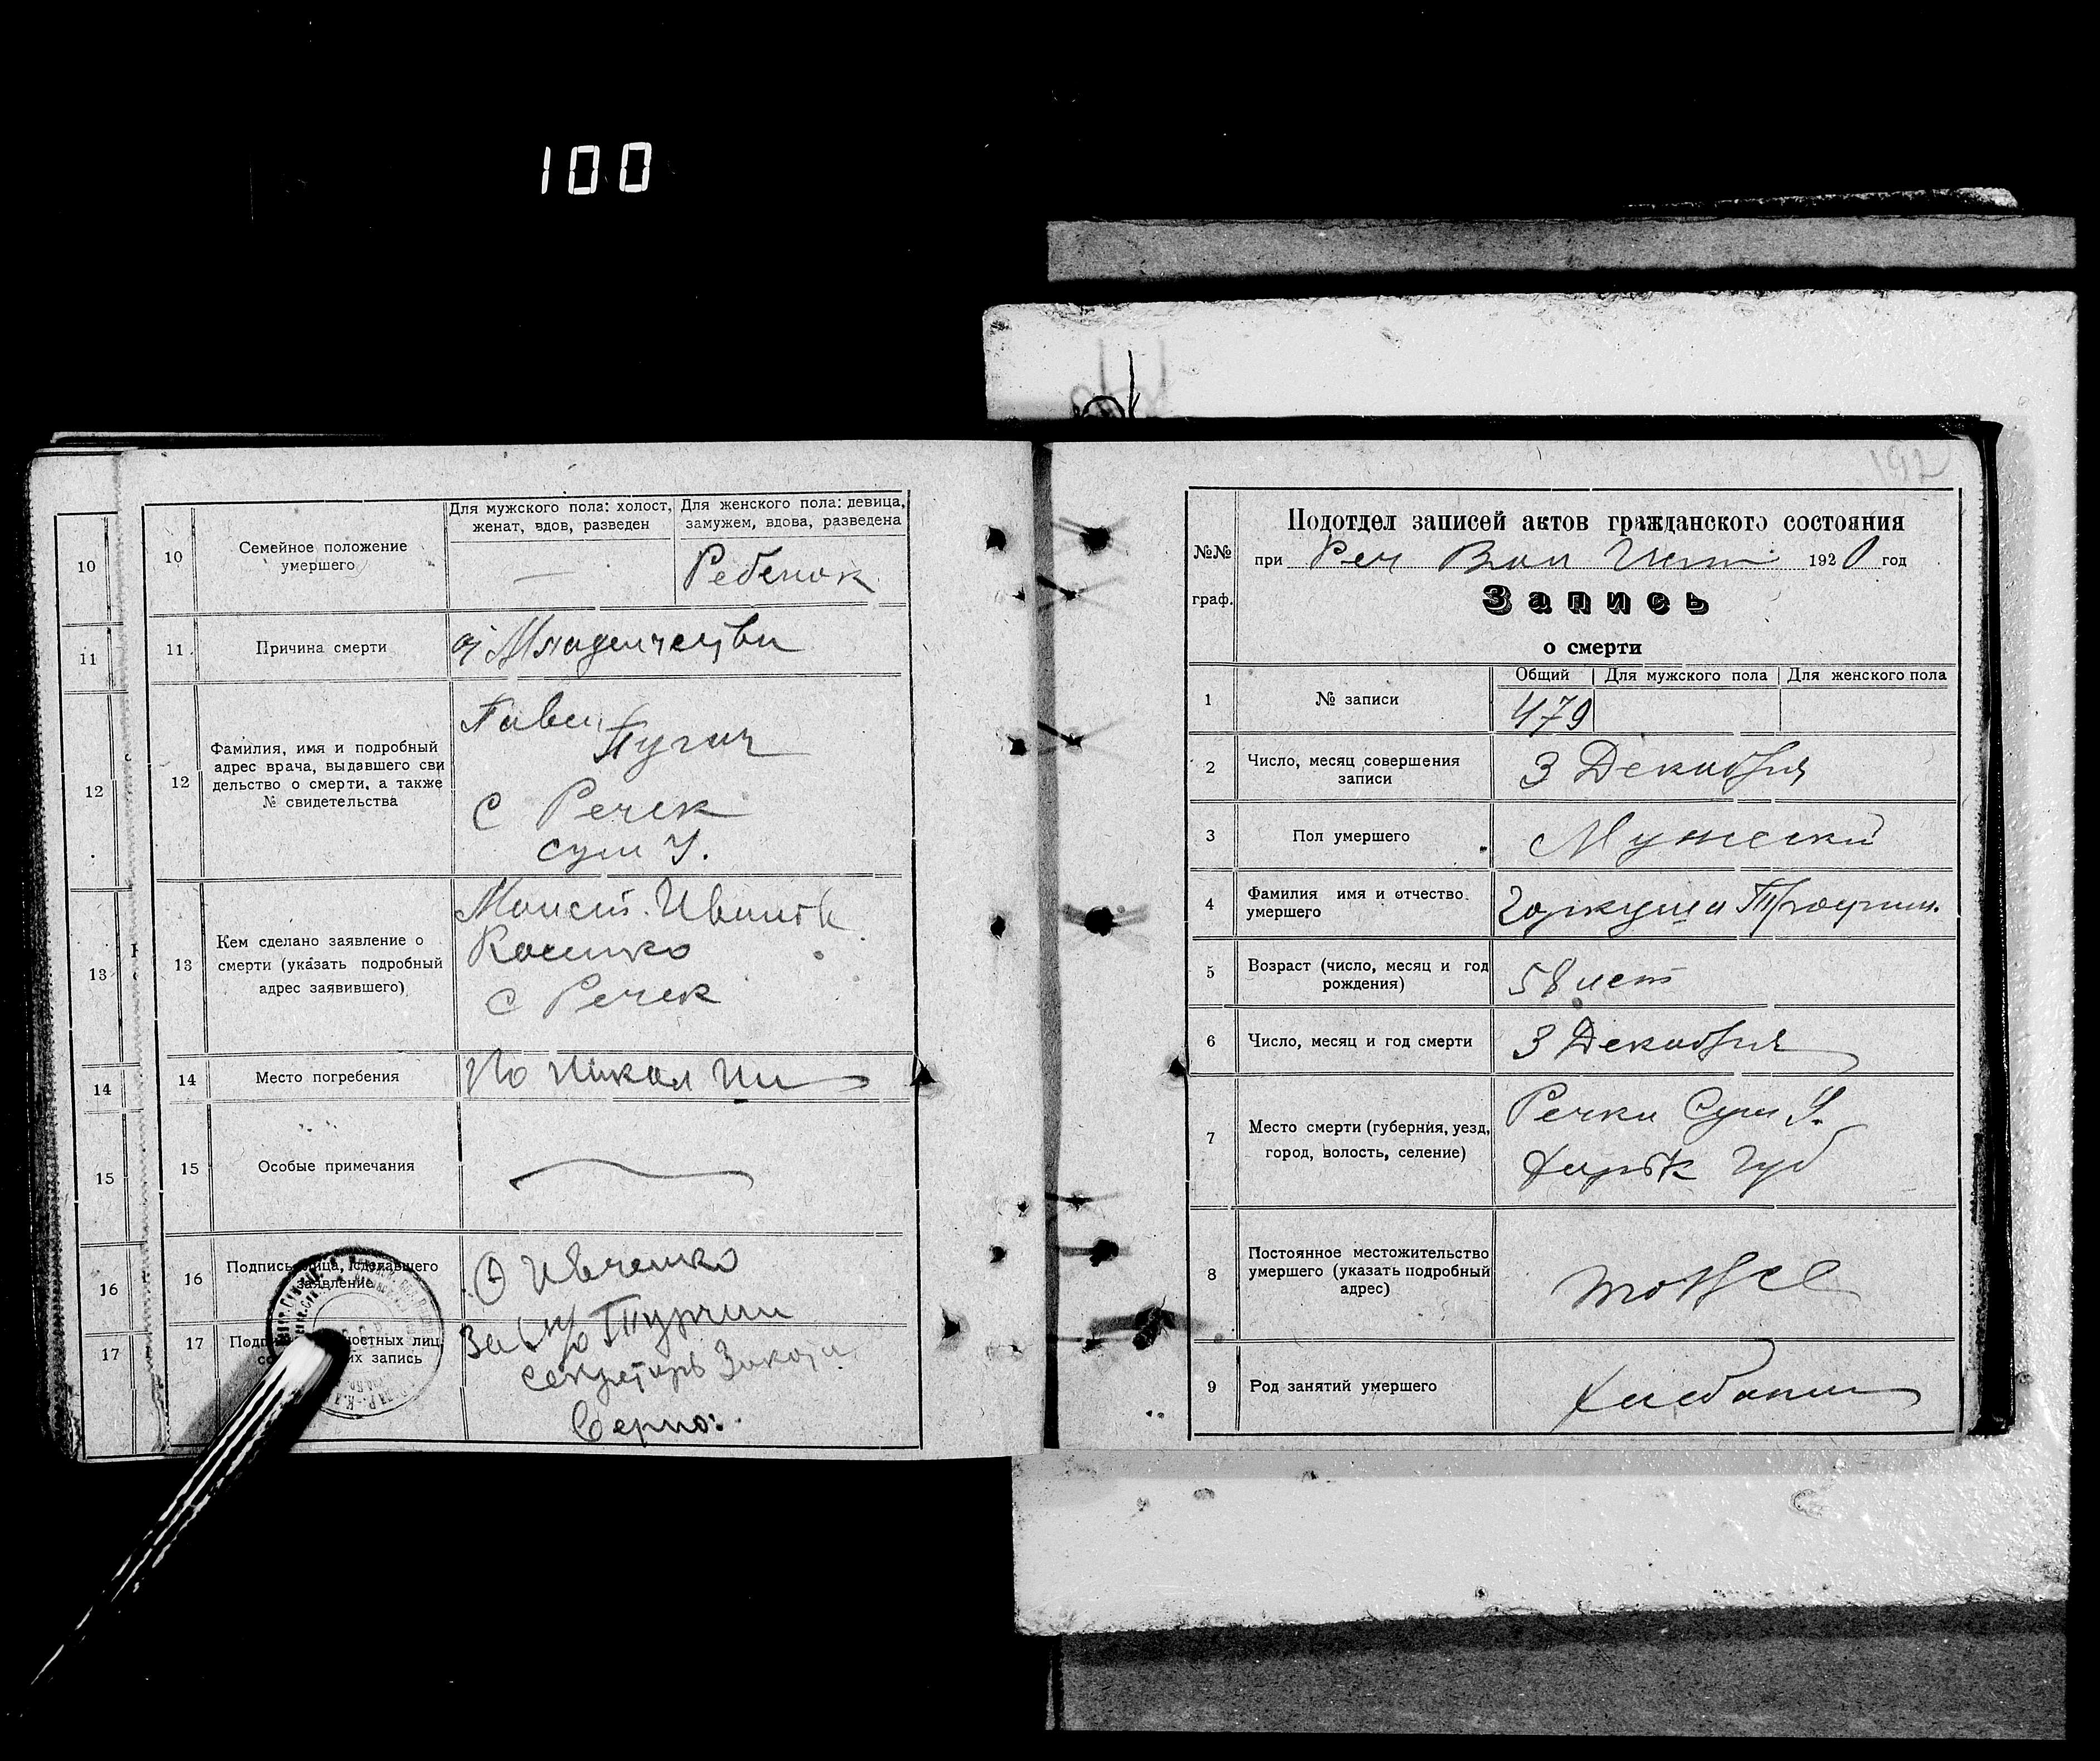 100
10
11
12
13
14
15
16
17
10
Семейное положение
умершего
Для мужского пола: холост,
женат, вдов, разведен
Для женского пола: девица,
замужем, вдова, разведена
—
Ребенок
11
Причина смерти
Младенчества
12
Фамилия, имя и подробный
адрес врача, выдавшего сви
дельство о смерти, а также
№ свидетельства
Павел
Пугач
С Речек
Сум У.
13
Кем сделано заявление о
смерти (указать подробный
адрес заявившего)
С Речек
14
Место погребения
15
Особые примечания
16
Подпись лица, сделавшего
заявление
Ивченко
17
лиц,
запись
Секретарь
Верно:
192
№№
граф.
Подотдел записей актов гражданского состояния
при Реч Вол 1920 год
Запись
о смерти
1
№ записи
Общий
Для мужского пола
Для женского пола
479
2
Число, месяц совершения
записи
3 Декабря
3
Пол умершего
Мужески
4
Фамилия имя и отчество
умершего
5
Возраст (число, месяц и год
рождения)
58 лет
6
Число, месяц и год смерти
3 Декабря
7
Место смерти (губерния, уезд,
город, волость, селение)
Речки Сум У.
Харьк Губ
8
Постоянное местожительство
умершего (указать подробный
адрес)
9
Род занятий умершего